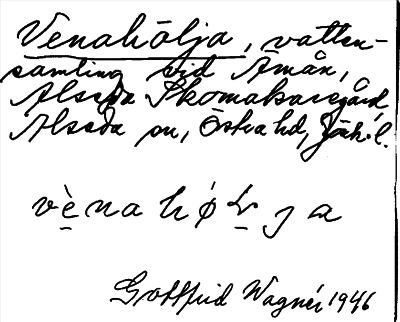 Venahölja, vatten-
samling vid Åmån,
Alseda Skomakaregård,
Alseda sn, Östra hd, Jönk. l.
vènahø ja
Gottfrid Wagnér 1946